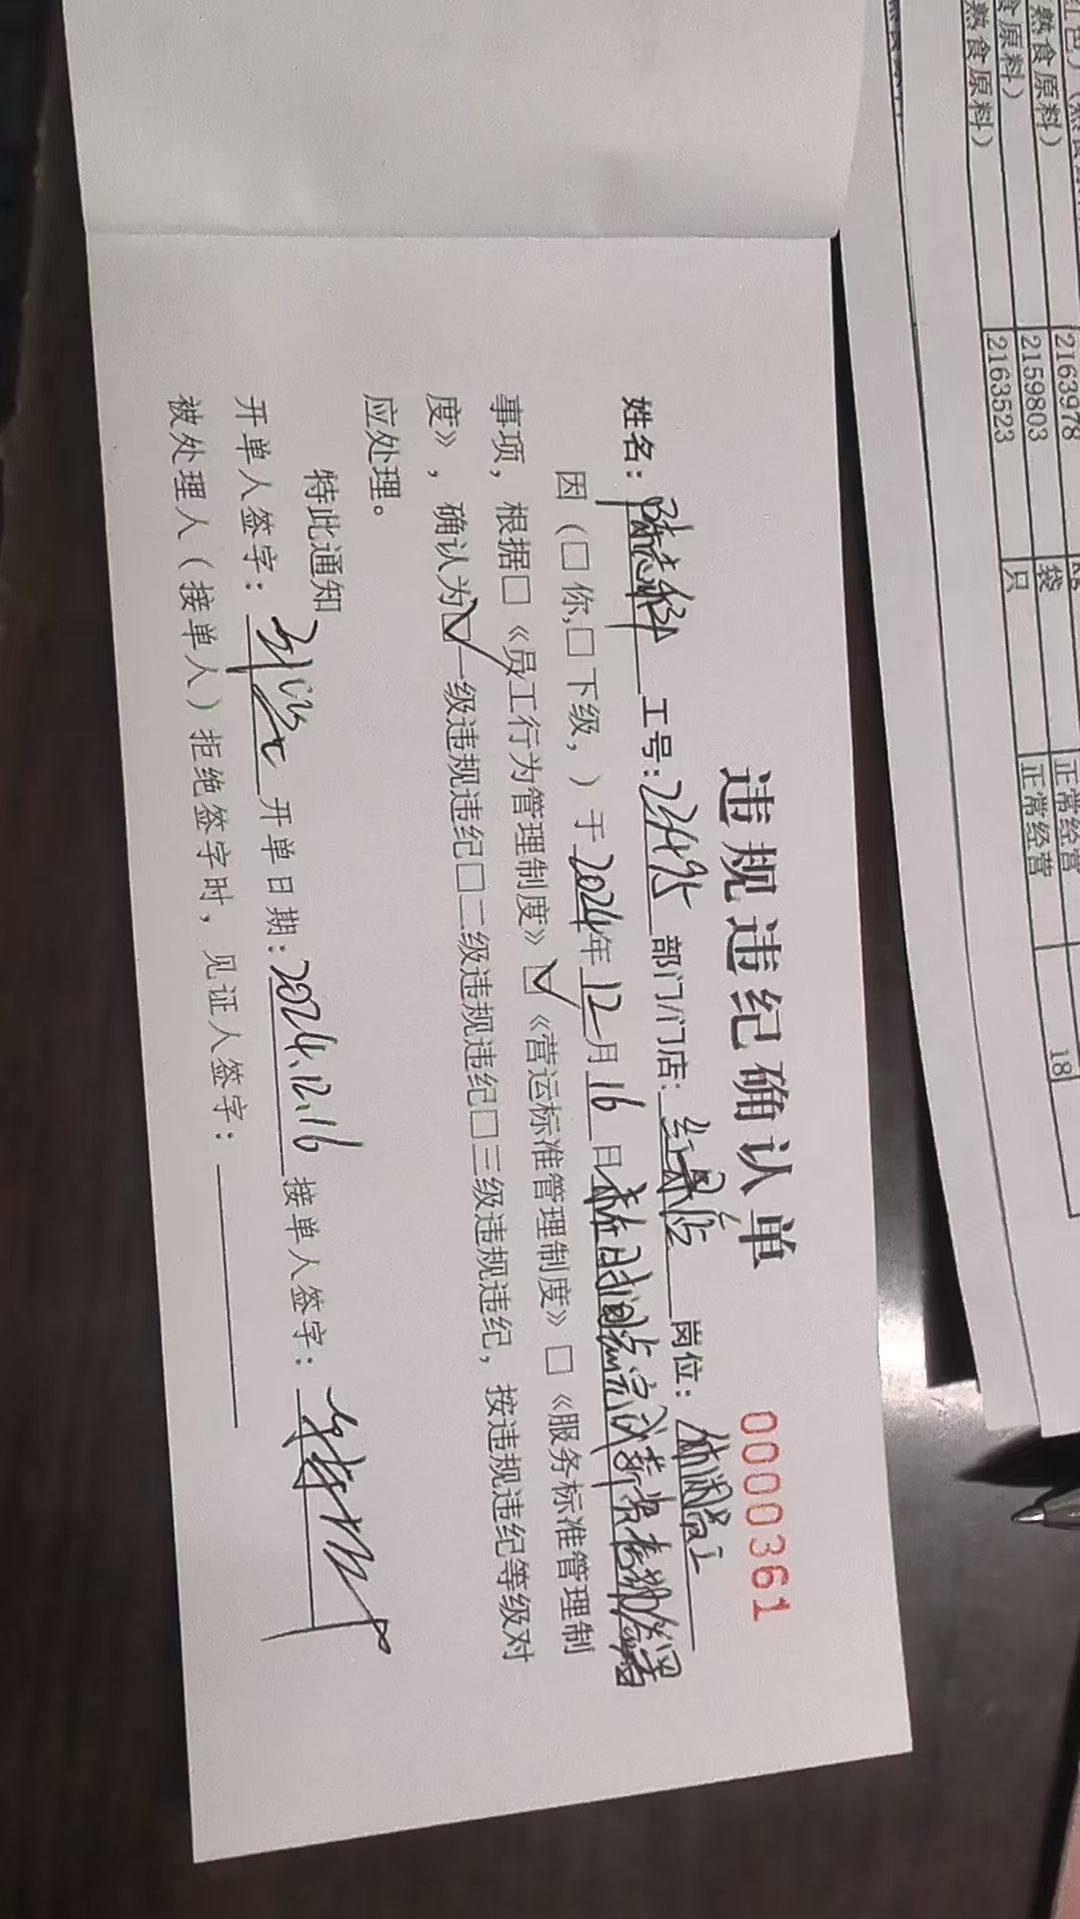 违规违纪确认单 0000361
姓名：陈志科 工号：23495 部门/门店：红星店 岗位：休闲员工
因（□你，□下级，）于2024年12月16日未在时间点完成
事项，根据□《员工行为管理制度》☑《营运标准管理制度》□《服务标准管理制
度》，确认为☑一级违规违纪□二级违规违纪□三级违规违纪，按违规违纪等级对
应处理。
特此通知
开单人签字： 开单日期：2024.12.16 接单人签字：
被处理人（接单人）拒绝签字时，见证人签字：
红色）
熟食原料） 2163978 正常经营 18
食原料） 2159803 袋 正常经营
熟食原料） 2163523 只